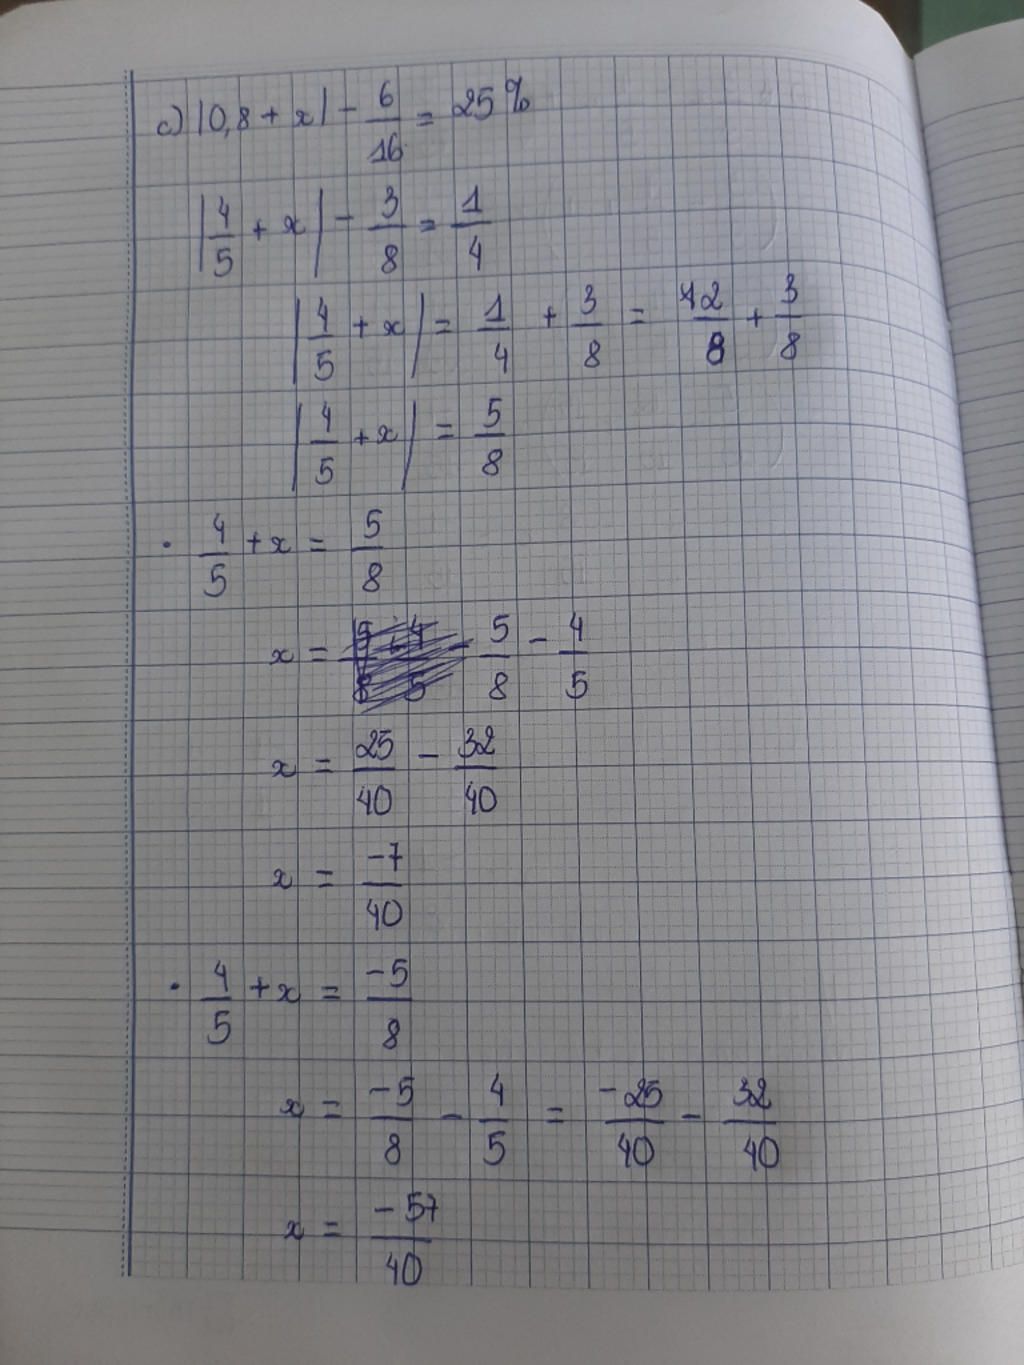 c) |0,8 + x| - 6/16 = 25%
|4/5 + x| - 3/8 = 1/4
|4/5 + x| = 1/4 + 3/8 = 2/8 + 3/8
|4/5 + x| = 5/8
. 4/5 + x = 5/8
x = 5/8 - 4/5
x = 25/40 - 32/40
x = -7/40
. 4/5 + x = -5/8
x = -5/8 - 4/5 = -25/40 - 32/40
x = -57/40